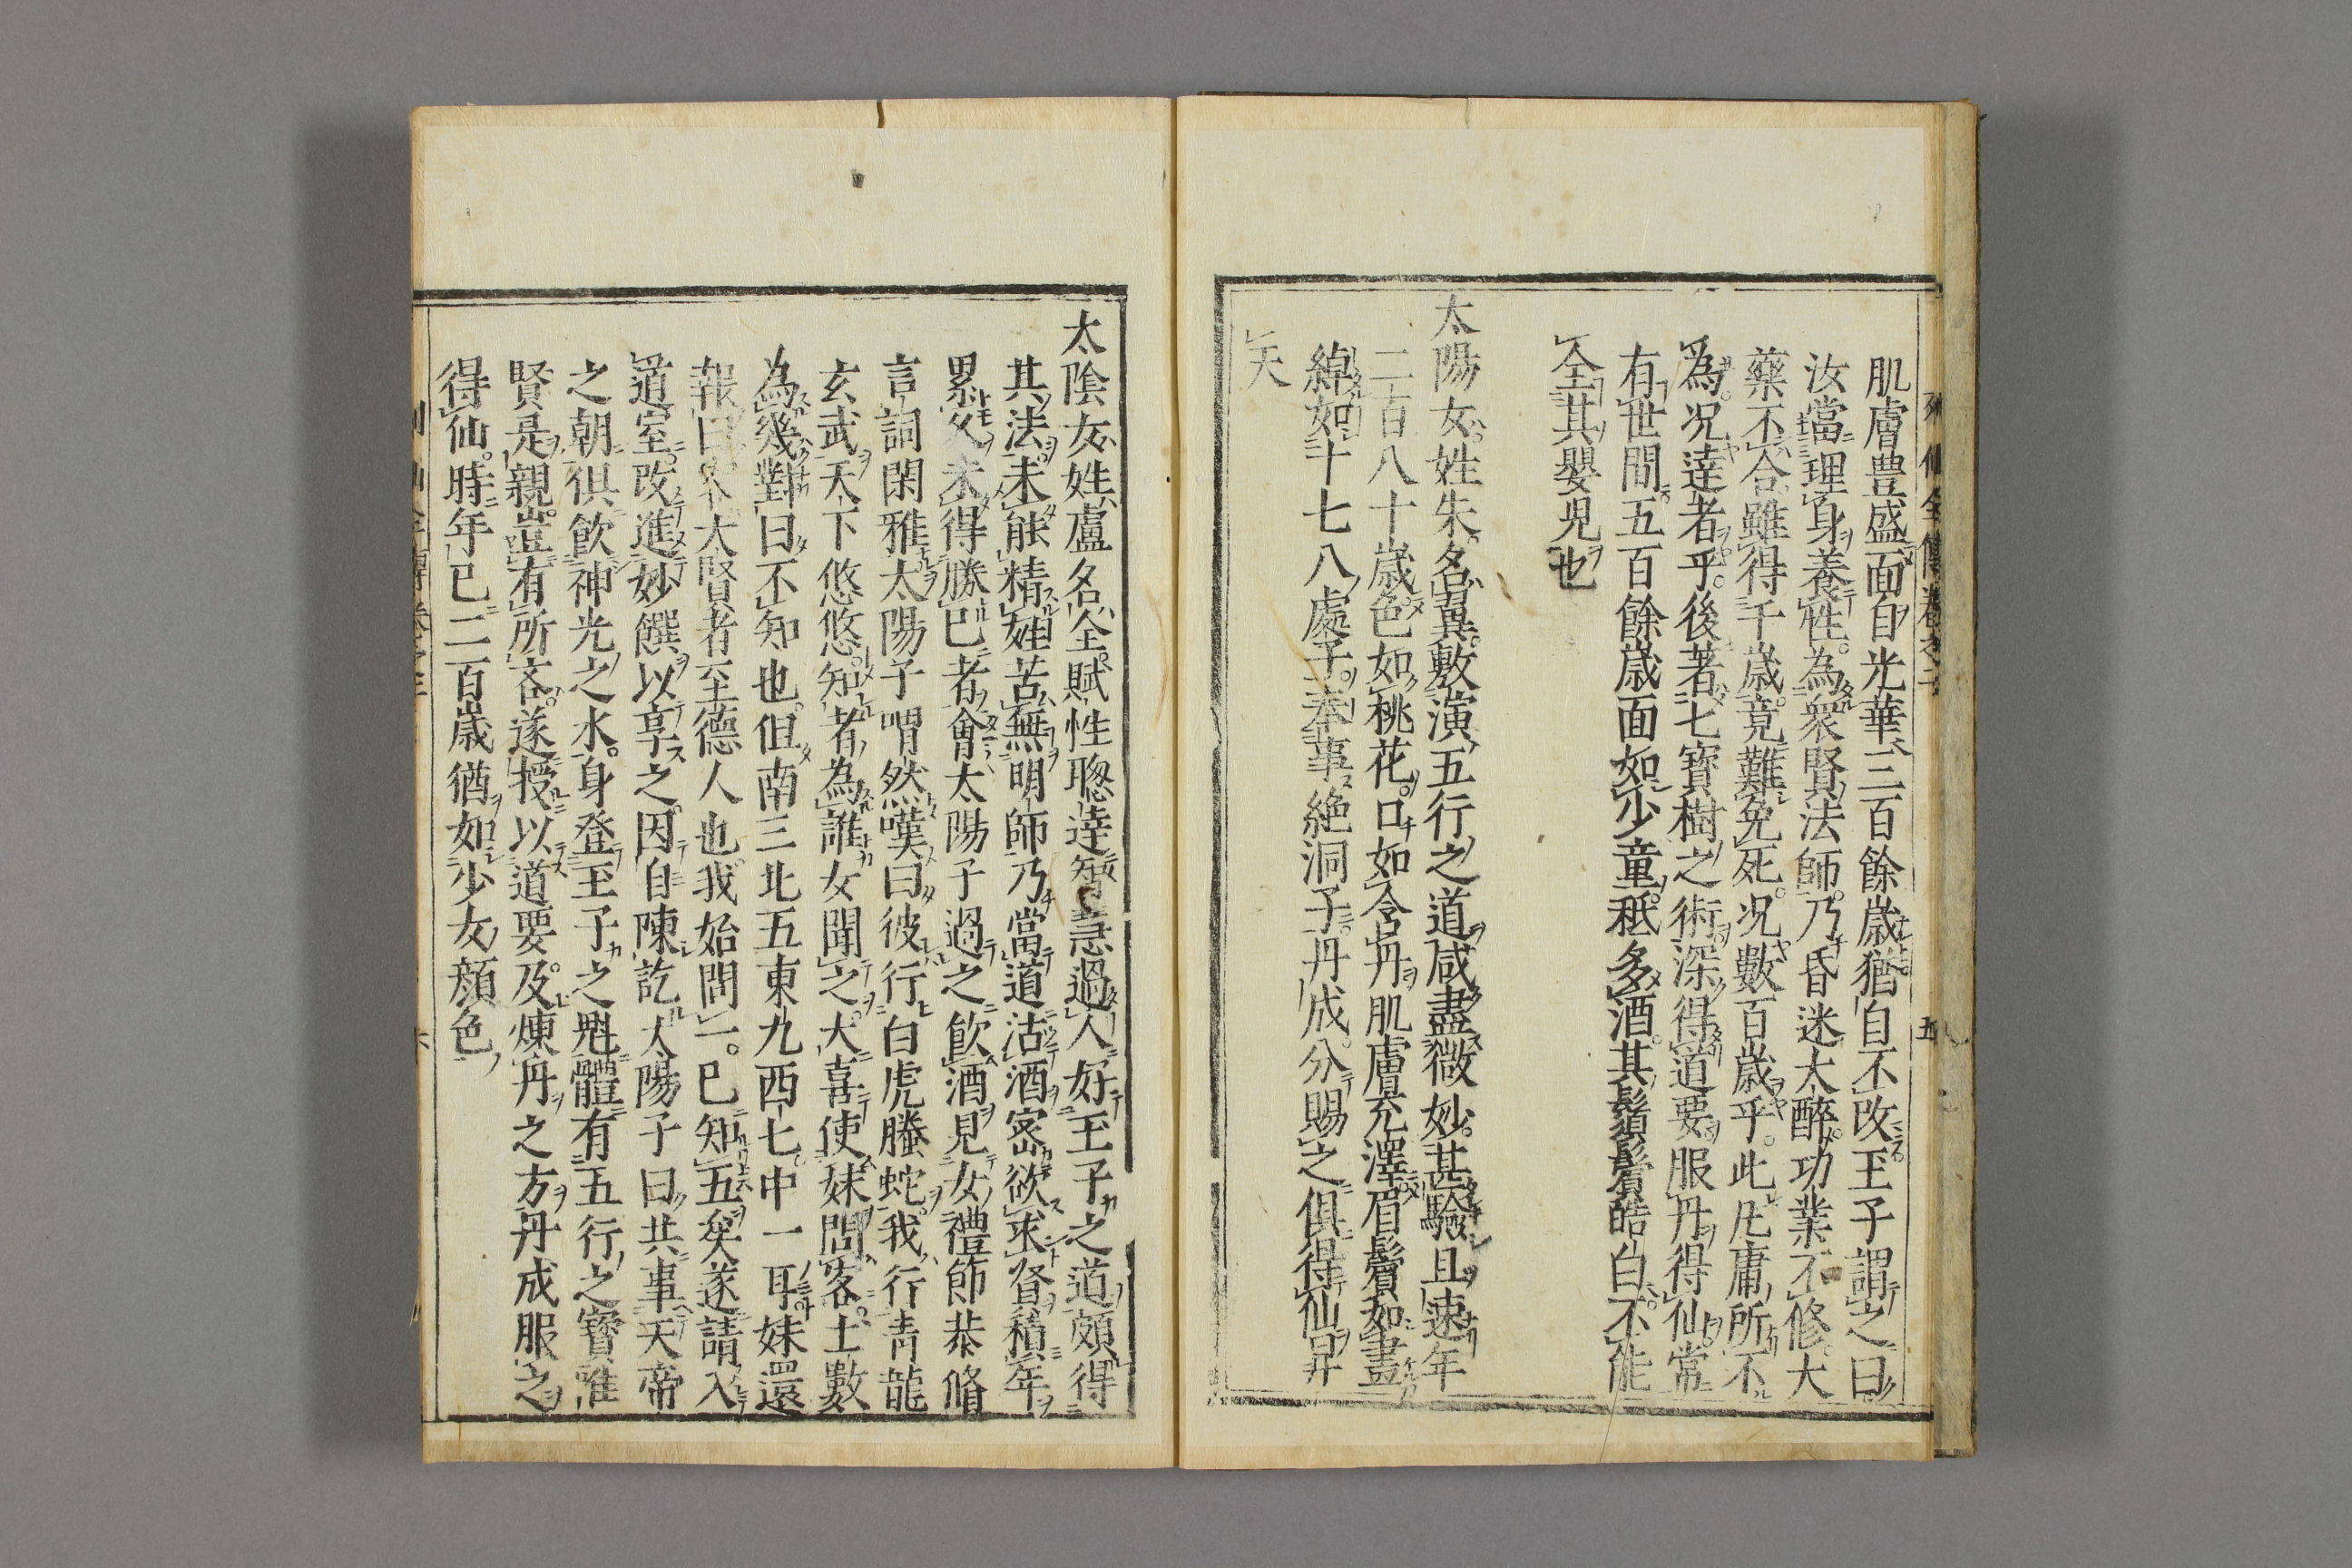 肌膚豊盛面自光華三百餘歳猶自不改玉子謂之曰
汝當理身養性為衆賢法師乃昏迷大醉功業不修大
藥不合雖得千歳竟難免死况數百歳乎此凡庸所不
爲况達者乎後著七寶樹之術深得道要服丹得仙常
有世間五百餘歳面如少童秖多酒其鬚鬢皓白不能
全其嬰児也
太陽女姓朱名翼敷演五行之道咸盡微妙甚驗且速年
二百八十歳色如桃花口如含丹肌膚充澤眉鬢如畫
綽如十七八處子奉事絶洞子丹成分賜之俱得仙昇
天
太陰女姓盧名全賦性聰達智急過人好玉子之道頗得
其法未能精妙苦無明師乃當道沽酒密欲求督積年
累久未得勝巳者會太陽子過之飲酒見女禮節恭脩
言詞閑雅太陽子喟然嘆曰彼行白虎螣蛇我行青龍
玄武天下悠悠知者為誰女聞之大喜使妹問客土數
為幾對曰不知也但南三北五東九西七中一耳妹還
報曰客大賢者至德人也我始問一巳知五矣遂請入
道室改進妙饌以享之因自陳訖太陽子曰共事天帝
之朝俱飲神光之水身登玉子之魁體有五行之寶唯
賢是親豈有所吝遂授以道要及煉丹之方丹成服之
得仙時年巳二百歳猶如少女顔色